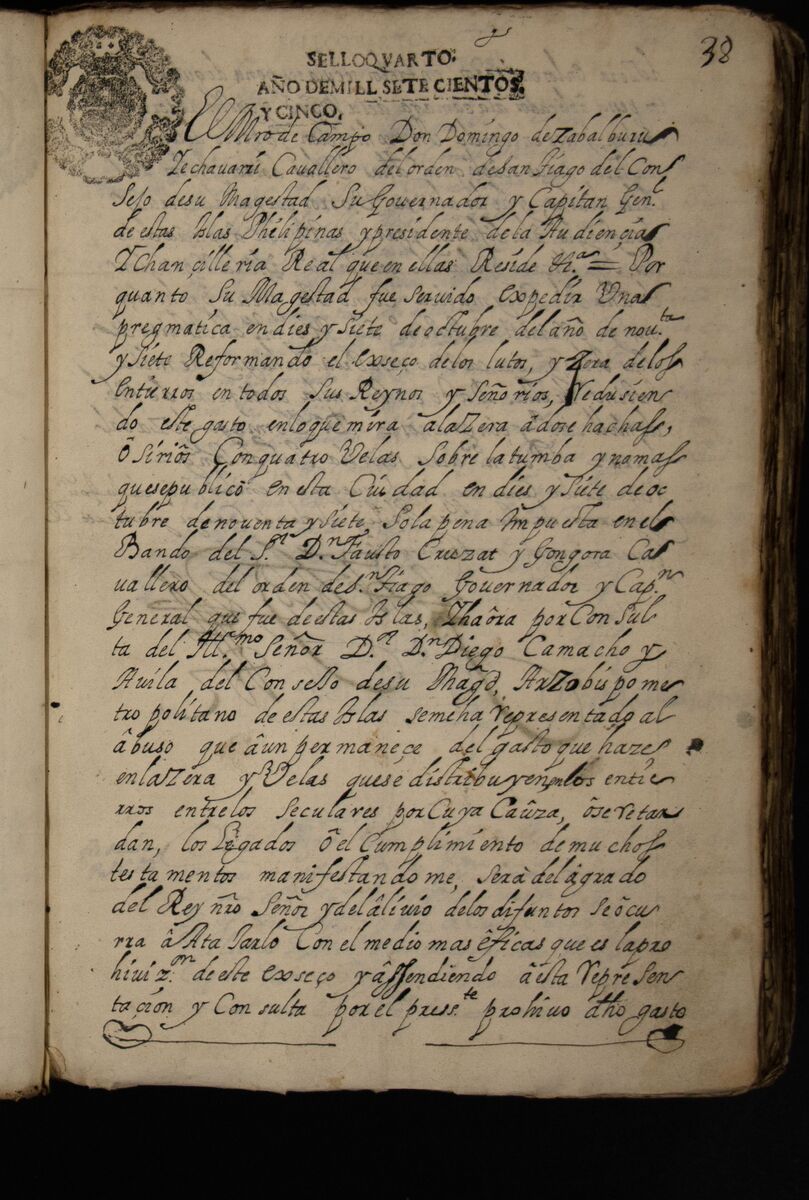 38
SELLO QVARTO:
AÑO DE MILL SETECIENTOS,
Y CINCO.
El Mro de Campo Don Domingo de Zabalburu
Y echavarri Cavallero del orden de san tiago del Con
sejo de su Magestad Su Governador y Capitan Gen.l
de estas Islas Phelipinas y presidente de la Audiençia
Y Chançilleria Real que en ellas Reside &.a = Por
quanto Su Magestad fue servido expedir Una
pregmatica en dies y siete de octubre del año de nov.ta
y siete Reformando el exseço de los lutos, y Zera de los
entierros en todos sus Reynos y Señorios, redusien
do este gasto en lo que mira a la Zera â dose hachas,
ô sirios Con quatro Velas sobre la tumba y no mas
que se publicô en esta Ciudad en dies y siete de oc
tubre de noventa y siete, so la pena impuesta en el
Bando del S.r D.n Fausto Cruzat y Gongora Ca
vallero del orden de s.n tiago Governador y Cap.n
General que fue de estas Islas, Y haôra por Consul
ta del Ill.mo Señor D.r D.n Diego Camacho y
Avila del Consejo de su Magd, Arzobispo me
tropolitano de estas Islas se me ha representado al
âbuso que âun permaneçe del gasto que haze
en la Zera y Velas que se distribuyen en los entie
rros entre los seculares por Cuya Caûza, ô se retar
dan, los Legados ô el Cumplimiento de muchos
testamentos manifestandome, serà del âgrado
del Rey nro Señor y del âlivio de los difuntos se ôcu
rra â Atajarlo Con el medio mas êficas que es la pro
hiviz.on de este exseço y âtendiendo â esta represen
taçion y Consulta por el press.te prohivo dho gasto